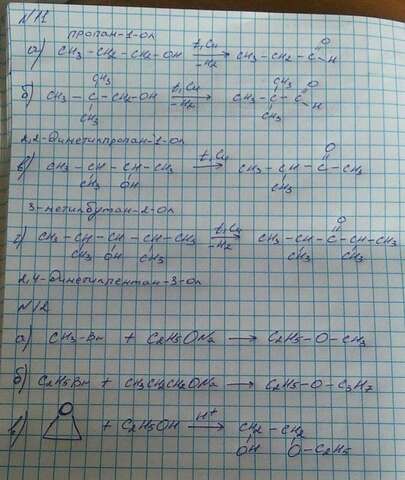 N11
пропан-1-ол
а) CH3-CH2-CH2-OH t,Cu -H2 → CH3-CH2-C O H
б) CH3-C-CH2OH t,Cu -H2 → CH3-C-C O H
CH3 CH3
CH3 CH3
2,2-диметилпропан-1-ол
в) CH3-CH-CH-CH3 t,Cu → CH3-CH-C-CH3 O
CH3 OH CH3
3-метилбутан-2-ол
г) CH3-CH-CH-CH-CH3 t,Cu -H2 → CH3-CH-C-CH-CH3 O
CH3 OH CH3 CH3 CH3
2,4-диметилпентан-3-ол
N12
а) CH3-Br + C2H5ONa → C2H5-O-CH3
б) C2H5Br + CH3CH2CH2ONa → C2H5-O-C3H7
в) O + C2H5OH H+ → CH2-CH2
OH O-C2H5